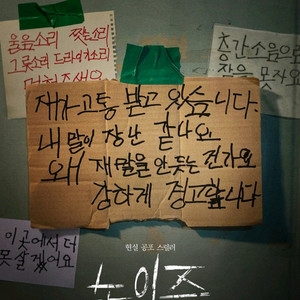 울음소리 짖는소리
그릇소리 드라이소리
층간소음으로
잠을 못자요
재가 고통 받고 있습니다.
내 말이 장난 같나요
왜 재말을 안듣는 건가요
강하게 경고합니다
이곳에서 더
못살겠어요
현실 공포 스릴러
노이즈